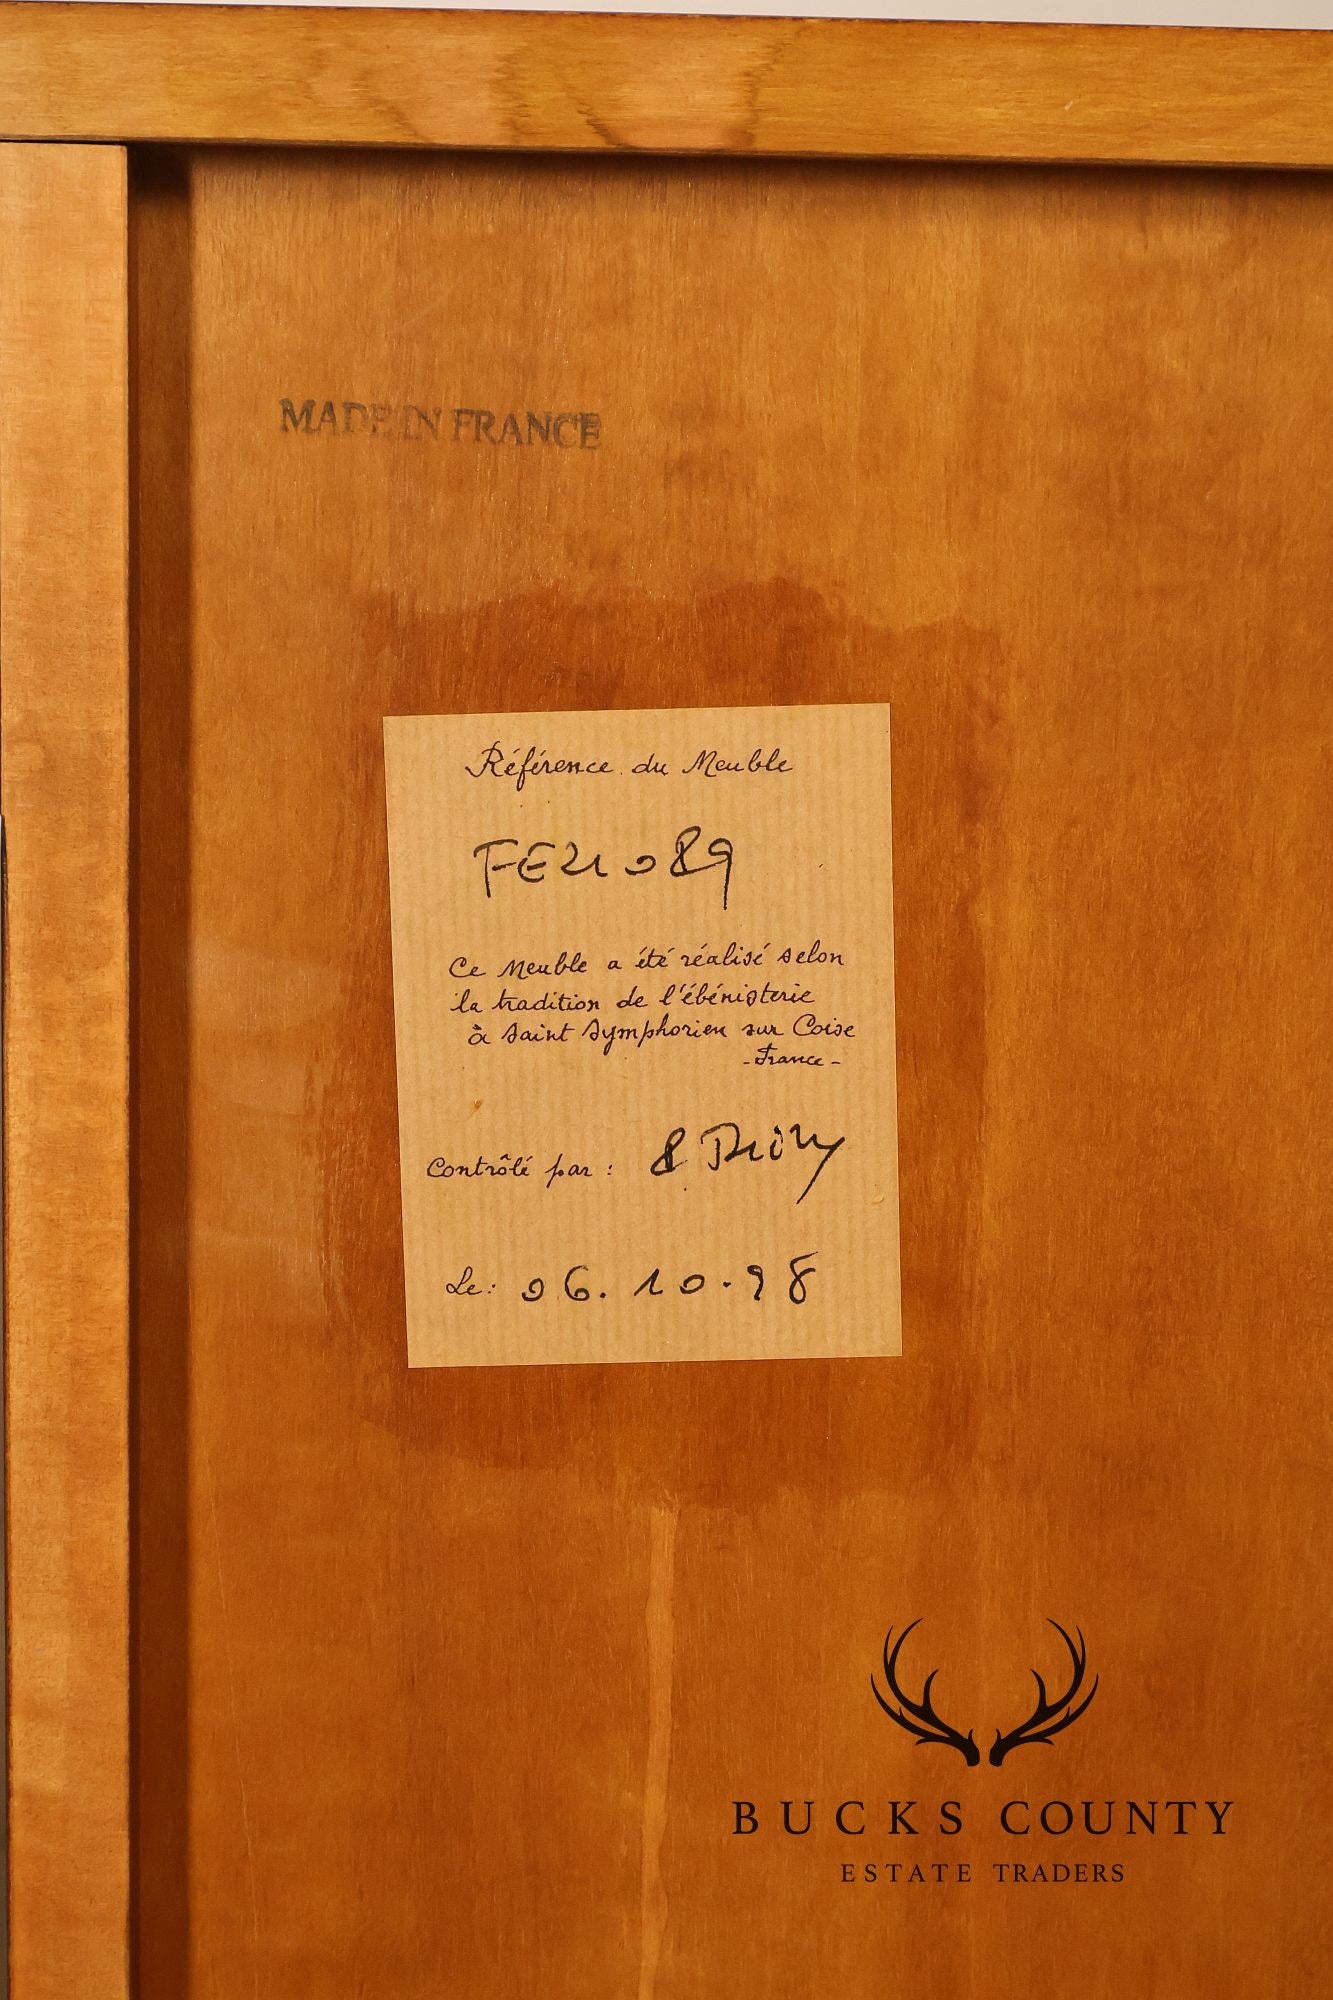 MADE IN FRANCE
Référence du Meuble
Ce Meuble a été réalisé selon
la tradition de l'ébénisterie
à Saint Symphorien sur Coise
- France -
Contrôlé par :
Le: 06.10.98
BUCKS COUNTY
ESTATE TRADERS